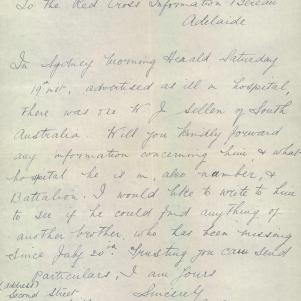 To the Red Cross Information Bureau
Adelaide
In Sydney Morning Herald Saturday
19 inst, advertised as ill in hospital,
there was W J Sellen of South
Australia. Will you kindly forward
any information concerning him, & what
hospital he is in, also number, &
Battalion. I would like to write to him
to see if he could find anything of
another brother, who has been missing
since July 20th. Trusting you can send
particulars, I am yours
(address)
Second Street
Sincerely